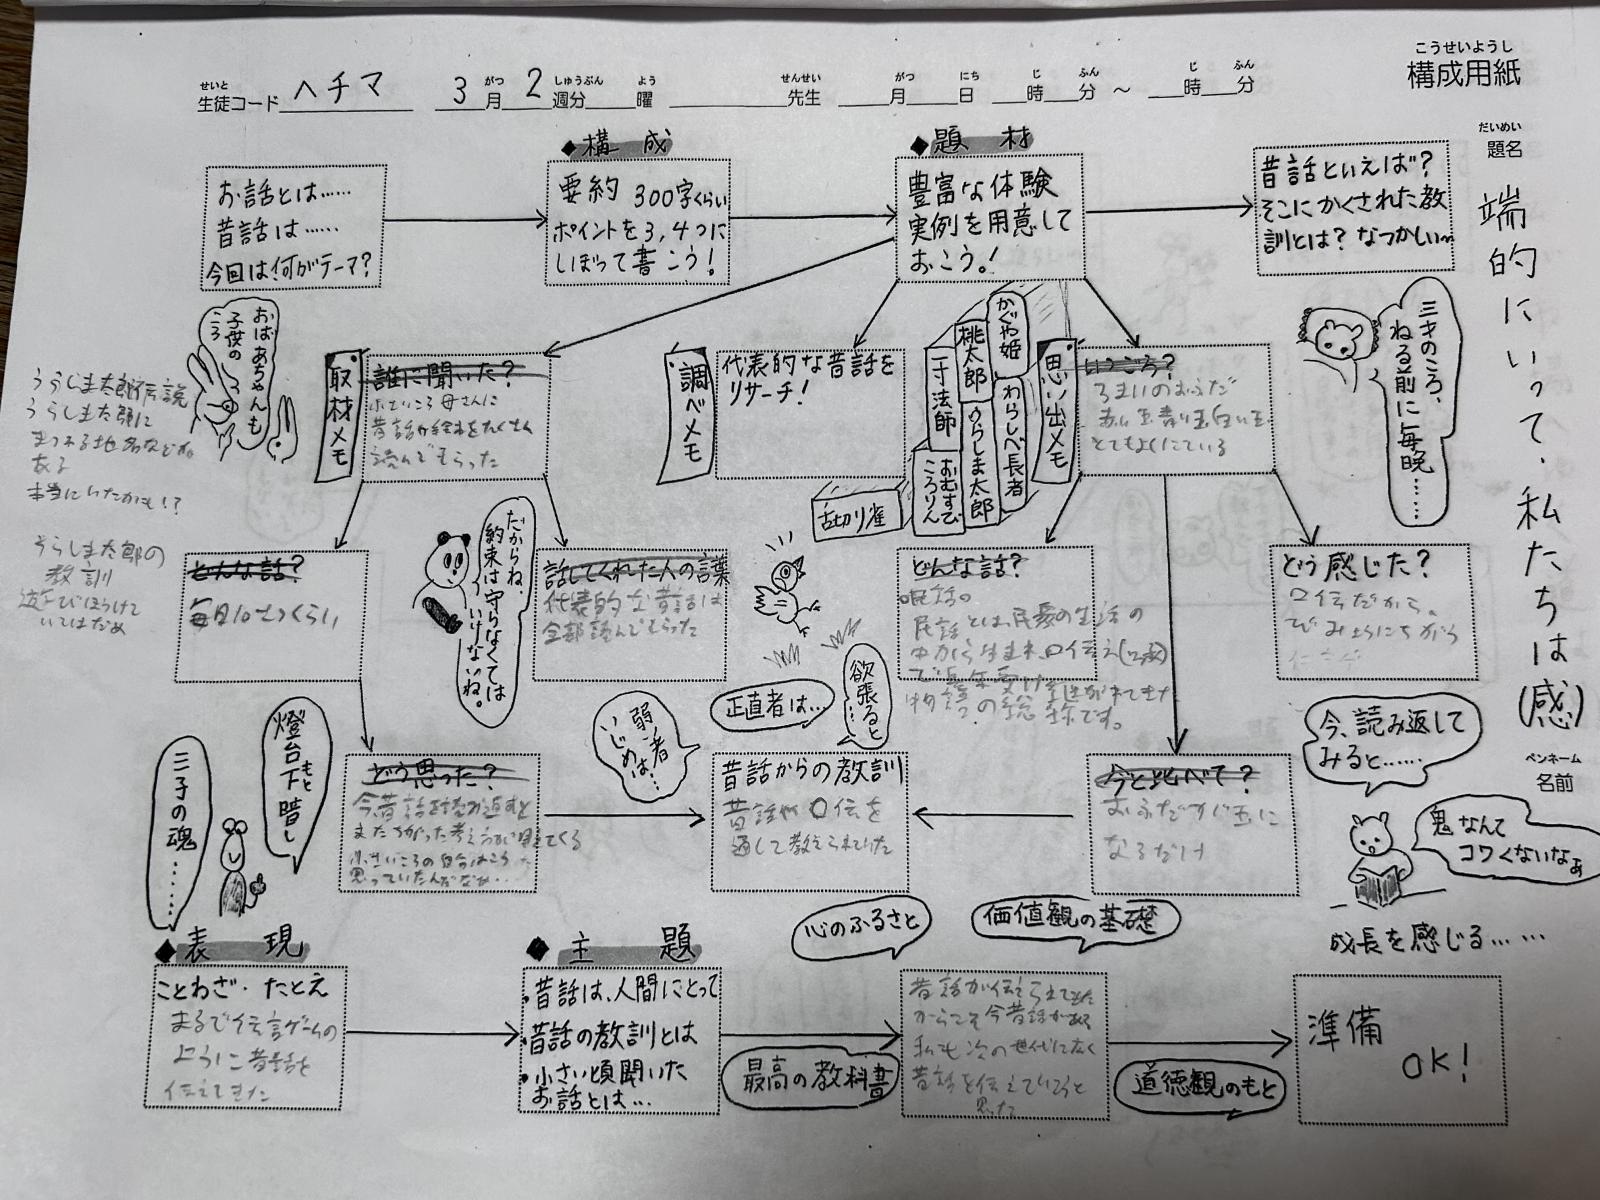 こうせいようし
構成用紙
せいと
生徒コード ヘチマ
がつ しゅうぶん よう
3月2週分 曜
せんせい
先生
がつ にち じ ふん じ ふん
月 日 時 分 ~ 時 分
だいめい
題名
端的にいって、私たちは(感)
ペンネーム
名前
お話とは……
昔話は……
今回は何がテーマ?
◆構成
要約 300字くらい
ポイントを3,4つに
しぼって書こう!
◆題材
豊富な体験
実例を用意して
おこう。!
昔話といえば?
そこにかくされた教
訓とは?なつかしい~
おばあちゃんも
子供の
ころ
取材メモ
誰に聞いた?
母さんに
読んでもらった
調べメモ
代表的な昔話を
リサーチ!
かぐや姫
桃太郎
一寸法師
わらしべ長者
うらしま太郎
おむすび
ころりん
舌切り雀
思い出メモ
いつごろ?
三才のころ、
ねる前に毎晩……
うらしま太郎
本当にいたかも!?
うらしま太郎の
教訓
遊びほうけて
いてはだめ
どんな話?
毎日10さつくらい
だからね、
約束は守らなくては
いけないのね。
話してくれた人の言葉
代表的な昔話は
全部読んでもらった
どんな話?
民話とは、民衆の生活の
中から生まれ、口伝え
物語の総称です。
どう感じた?
口伝だから、
正直者は…
欲張ると
……
弱い者
いじめは…
今、読み返して
みると……
燈台下暗し
もと
三子の魂……
どう思った?
今昔話を読み返すと
またちがった考え方が見えてくる
小さいころの自分はこう
思っていたんだなぁ…
昔話からの教訓
昔話や口伝を
通して教えられてきた
今と比べて?
鬼なんて
コワくないなぁ
成長を感じる……
心のふるさと
価値観の基礎
◆表現
ことわざ・たとえ
まるで伝言ゲームの
ように昔話を
伝えてきた
◆主題
・昔話は、人間にとって
・昔話の教訓とは
・小さい頃聞いた
お話とは…
最高の教科書
昔話が伝えられてきた
からこそ今昔話がある
私も次の世代に広く
昔話を伝えていこうと
思た
道徳観のもと
準備
OK!